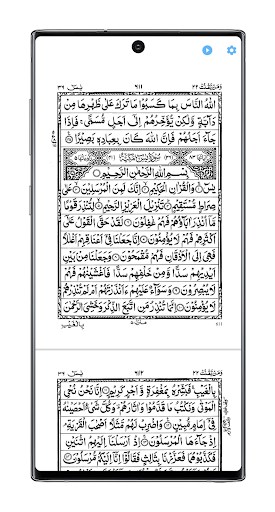 وَمَنْ يَّقْنُتْ ٢٢ ٦١١ يٰسٓ ٣٦
اللّٰهُ النَّاسَ بِمَا كَسَبُوْا مَا تَرَكَ عَلٰى ظَهْرِهَا مِنْ
دَآبَّةٍ وَّلٰكِنْ يُّؤَخِّرُهُمْ اِلٰۤى اَجَلٍ مُّسَمًّى ۚ فَاِذَا
جَآءَ اَجَلُهُمْ فَاِنَّ اللّٰهَ كَانَ بِعِبَادِهٖ بَصِيْرًا
بِسْمِ اللّٰهِ الرَّحْمٰنِ الرَّحِيْمِ
يٰسٓ ۚ وَالْقُرْاٰنِ الْحَكِيْمِ ۙ اِنَّكَ لَمِنَ الْمُرْسَلِيْنَ ۙ عَلٰى
صِرَاطٍ مُّسْتَقِيْمٍ ؕ تَنْزِيْلَ الْعَزِيْزِ الرَّحِيْمِ ۙ لِتُنْذِرَ قَوْمًا
مَّاۤ اُنْذِرَ اٰبَآؤُهُمْ فَهُمْ غٰفِلُوْنَ لَقَدْ حَقَّ الْقَوْلُ عَلٰۤى
اَكْثَرِهِمْ فَهُمْ لَا يُؤْمِنُوْنَ اِنَّا جَعَلْنَا فِيْۤ اَعْنَاقِهِمْ اَغْلٰلًا
فَهِيَ اِلَى الْاَذْقَانِ فَهُمْ مُّقْمَحُوْنَ وَجَعَلْنَا مِنْۢ بَيْنِ
اَيْدِيْهِمْ سَدًّا وَّمِنْ خَلْفِهِمْ سَدًّا فَاَغْشَيْنٰهُمْ فَهُمْ
لَا يُبْصِرُوْنَ وَسَوَآءٌ عَلَيْهِمْ ءَاَنْذَرْتَهُمْ اَمْ لَمْ تُنْذِرْهُمْ
لَا يُؤْمِنُوْنَ اِنَّمَا تُنْذِرُ مَنِ اتَّبَعَ الذِّكْرَ وَخَشِيَ الرَّحْمٰنَ
بِالْغَيْبِ
وَمَنْ يَّقْنُتْ ٢٢ ٦١٢ يٰسٓ ٣٦
بِالْغَيْبِ ۚ فَبَشِّرْهُ بِمَغْفِرَةٍ وَّاَجْرٍ كَرِيْمٍ اِنَّا نَحْنُ نُحْيِ
الْمَوْتٰى وَنَكْتُبُ مَا قَدَّمُوْا وَاٰثَارَهُمْ ؕ وَكُلَّ شَيْءٍ اَحْصَيْنٰهُ
فِيْۤ اِمَامٍ مُّبِيْنٍ وَاضْرِبْ لَهُمْ مَّثَلًا اَصْحٰبَ الْقَرْيَةِ ۘ
اِذْ جَآءَهَا الْمُرْسَلُوْنَ اِذْ اَرْسَلْنَاۤ اِلَيْهِمُ اثْنَيْنِ
فَكَذَّبُوْهُمَا فَعَزَّزْنَا بِثَالِثٍ فَقَالُوْۤا اِنَّاۤ اِلَيْكُمْ مُّرْسَلُوْنَ